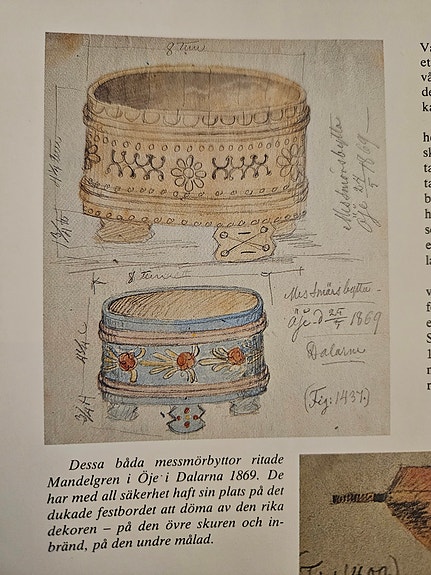 8 tum
4½ tum
Messmörbytta
Öje 27/7 1869
8 tum
Messmörsbytta -
Öje d. 27/7 1869
Dalarne
(Fig: 1437.)
Dessa båda messmörbyttor ritade
Mandelgren i Öje i Dalarna 1869. De
har med all säkerhet haft sin plats på det
dukade festbordet att döma av den rika
dekoren – på den övre skuren och in-
bränd, på den undre målad.